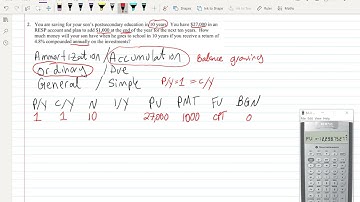 2. You are saving for your son's postsecondary education in 10 years. You have $27,000 in an
RESP account and plan to add $1,000 at the end of the year for the next ten years. How
much money will your son have when he goes to school in 10 years if you receive a return of
4.8% compounded annually on the investments?
Ammortization / Accumulation Balance growing
Ordinary / Due
General / Simple P/Y=1 = C/Y
P/Y C/Y N I/Y PV PMT FV BGN
1 1 10 27,000 1000 CPT 0